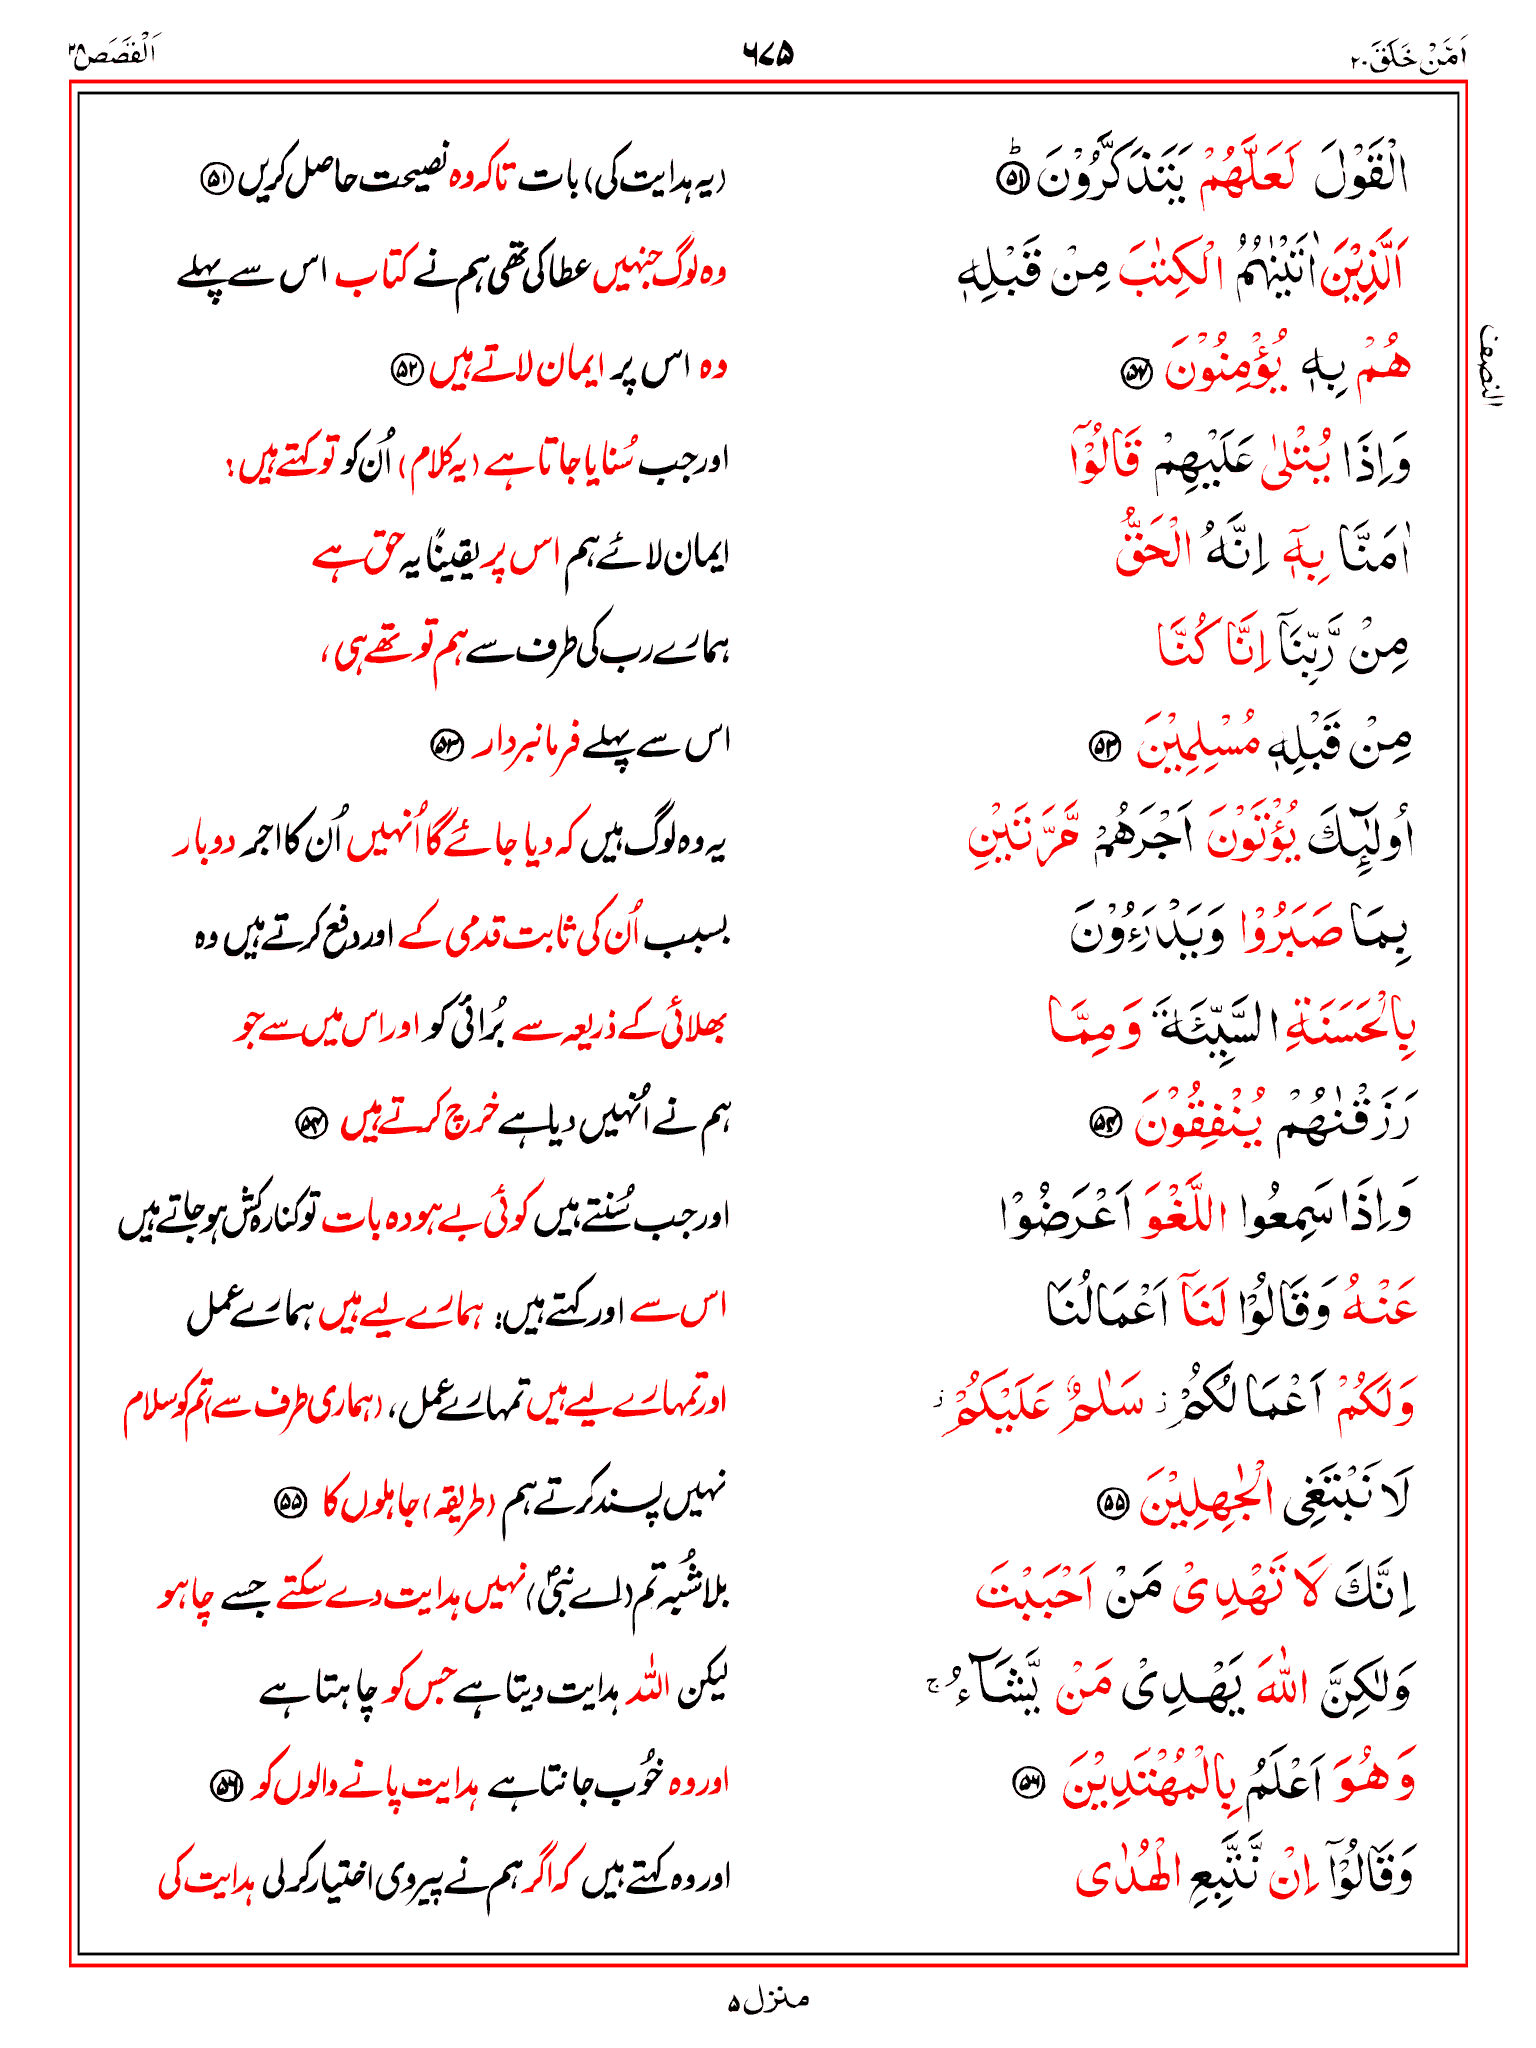 اَمَّنْ خَلَقَ ۲۰ ۶۷۵ اَلْقَصَص ۲۸
الْقَوْلَ لَعَلَّهُمْ يَتَذَكَّرُوْنَ ۵۱ؕ (یہ ہدایت کی) بات تاکہ وہ نصیحت حاصل کریں ۵۱
اَلَّذِيْنَ اٰتَيْنٰهُمُ الْكِتٰبَ مِنْ قَبْلِهٖ وہ لوگ جنہیں عطا کی تھی ہم نے کتاب اس سے پہلے
النصف
هُمْ بِهٖ يُؤْمِنُوْنَ ۵۲ وہ اس پر ایمان لاتے ہیں ۵۲
وَاِذَا يُتْلٰى عَلَيْهِمْ قَالُوْٓا اور جب سُنایا جاتا ہے (یہ کلام) اُن کو تو کہتے ہیں:
اٰمَنَّا بِهٖٓ اِنَّهُ الْحَقُّ ایمان لائے ہم اس پر یقیناً یہ حق ہے
مِنْ رَّبِّنَآ اِنَّا كُنَّا ہمارے رب کی طرف سے ہم تو تھے ہی،
مِنْ قَبْلِهٖ مُسْلِمِيْنَ ۵۳ اس سے پہلے فرمانبردار ۵۳
اُولٰٓئِكَ يُؤْتَوْنَ اَجْرَهُمْ مَّرَّتَيْنِ یہ وہ لوگ ہیں کہ دیا جائے گا اُنہیں اُن کا اجر دوبار
بِمَا صَبَرُوْا وَيَدْرَءُوْنَ بسبب اُن کی ثابت قدمی کے اور دفع کرتے ہیں وہ
بِالْحَسَنَةِ السَّيِّئَةَ وَمِمَّا بھلائی کے ذریعہ سے بُرائی کو اور اس میں سے جو
رَزَقْنٰهُمْ يُنْفِقُوْنَ ۵۴ ہم نے اُنہیں دیا ہے خرچ کرتے ہیں ۵۴
وَاِذَا سَمِعُوا اللَّغْوَ اَعْرَضُوْا اور جب سُنتے ہیں کوئی بے ہودہ بات تو کنارہ کش ہو جاتے ہیں
عَنْهُ وَقَالُوْا لَنَآ اَعْمَالُنَا اس سے اور کہتے ہیں: ہمارے لیے ہیں ہمارے عمل
وَلَكُمْ اَعْمَالُكُمْ ز سَلٰمٌ عَلَيْكُمْ ز اور تمہارے لیے ہیں تمہارے عمل، (ہماری طرف سے) تم کو سلام
لَا نَبْتَغِى الْجٰهِلِيْنَ ۵۵ نہیں پسند کرتے ہم (طریقہ) جاہلوں کا ۵۵
اِنَّكَ لَا تَهْدِىْ مَنْ اَحْبَبْتَ بلاشُبہ تم (اے نبیؐ) نہیں ہدایت دے سکتے جسے چاہو
وَلٰكِنَّ اللّٰهَ يَهْدِىْ مَنْ يَّشَآءُ ج لیکن اللہ ہدایت دیتا ہے جس کو چاہتا ہے
وَهُوَ اَعْلَمُ بِالْمُهْتَدِيْنَ ۵۶ اور وہ خُوب جانتا ہے ہدایت پانے والوں کو ۵۶
وَقَالُوْٓا اِنْ نَّتَّبِعِ الْهُدٰى اور وہ کہتے ہیں کہ اگر ہم نے پیروی اختیار کر لی ہدایت کی
منزل ۵